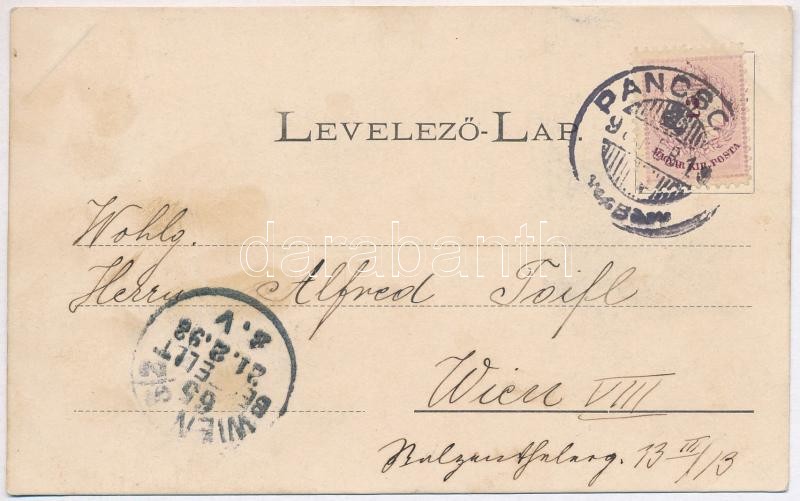 LEVELEZŐ-LAP.
PANCSO
MAGYAR KIR. POSTA
Wohlg.
Herrn Alfred Toifl
darabanth
Wien VIII
13 III/13
WIEN 8/2
65
BESTELLT
21.2.92
8.V